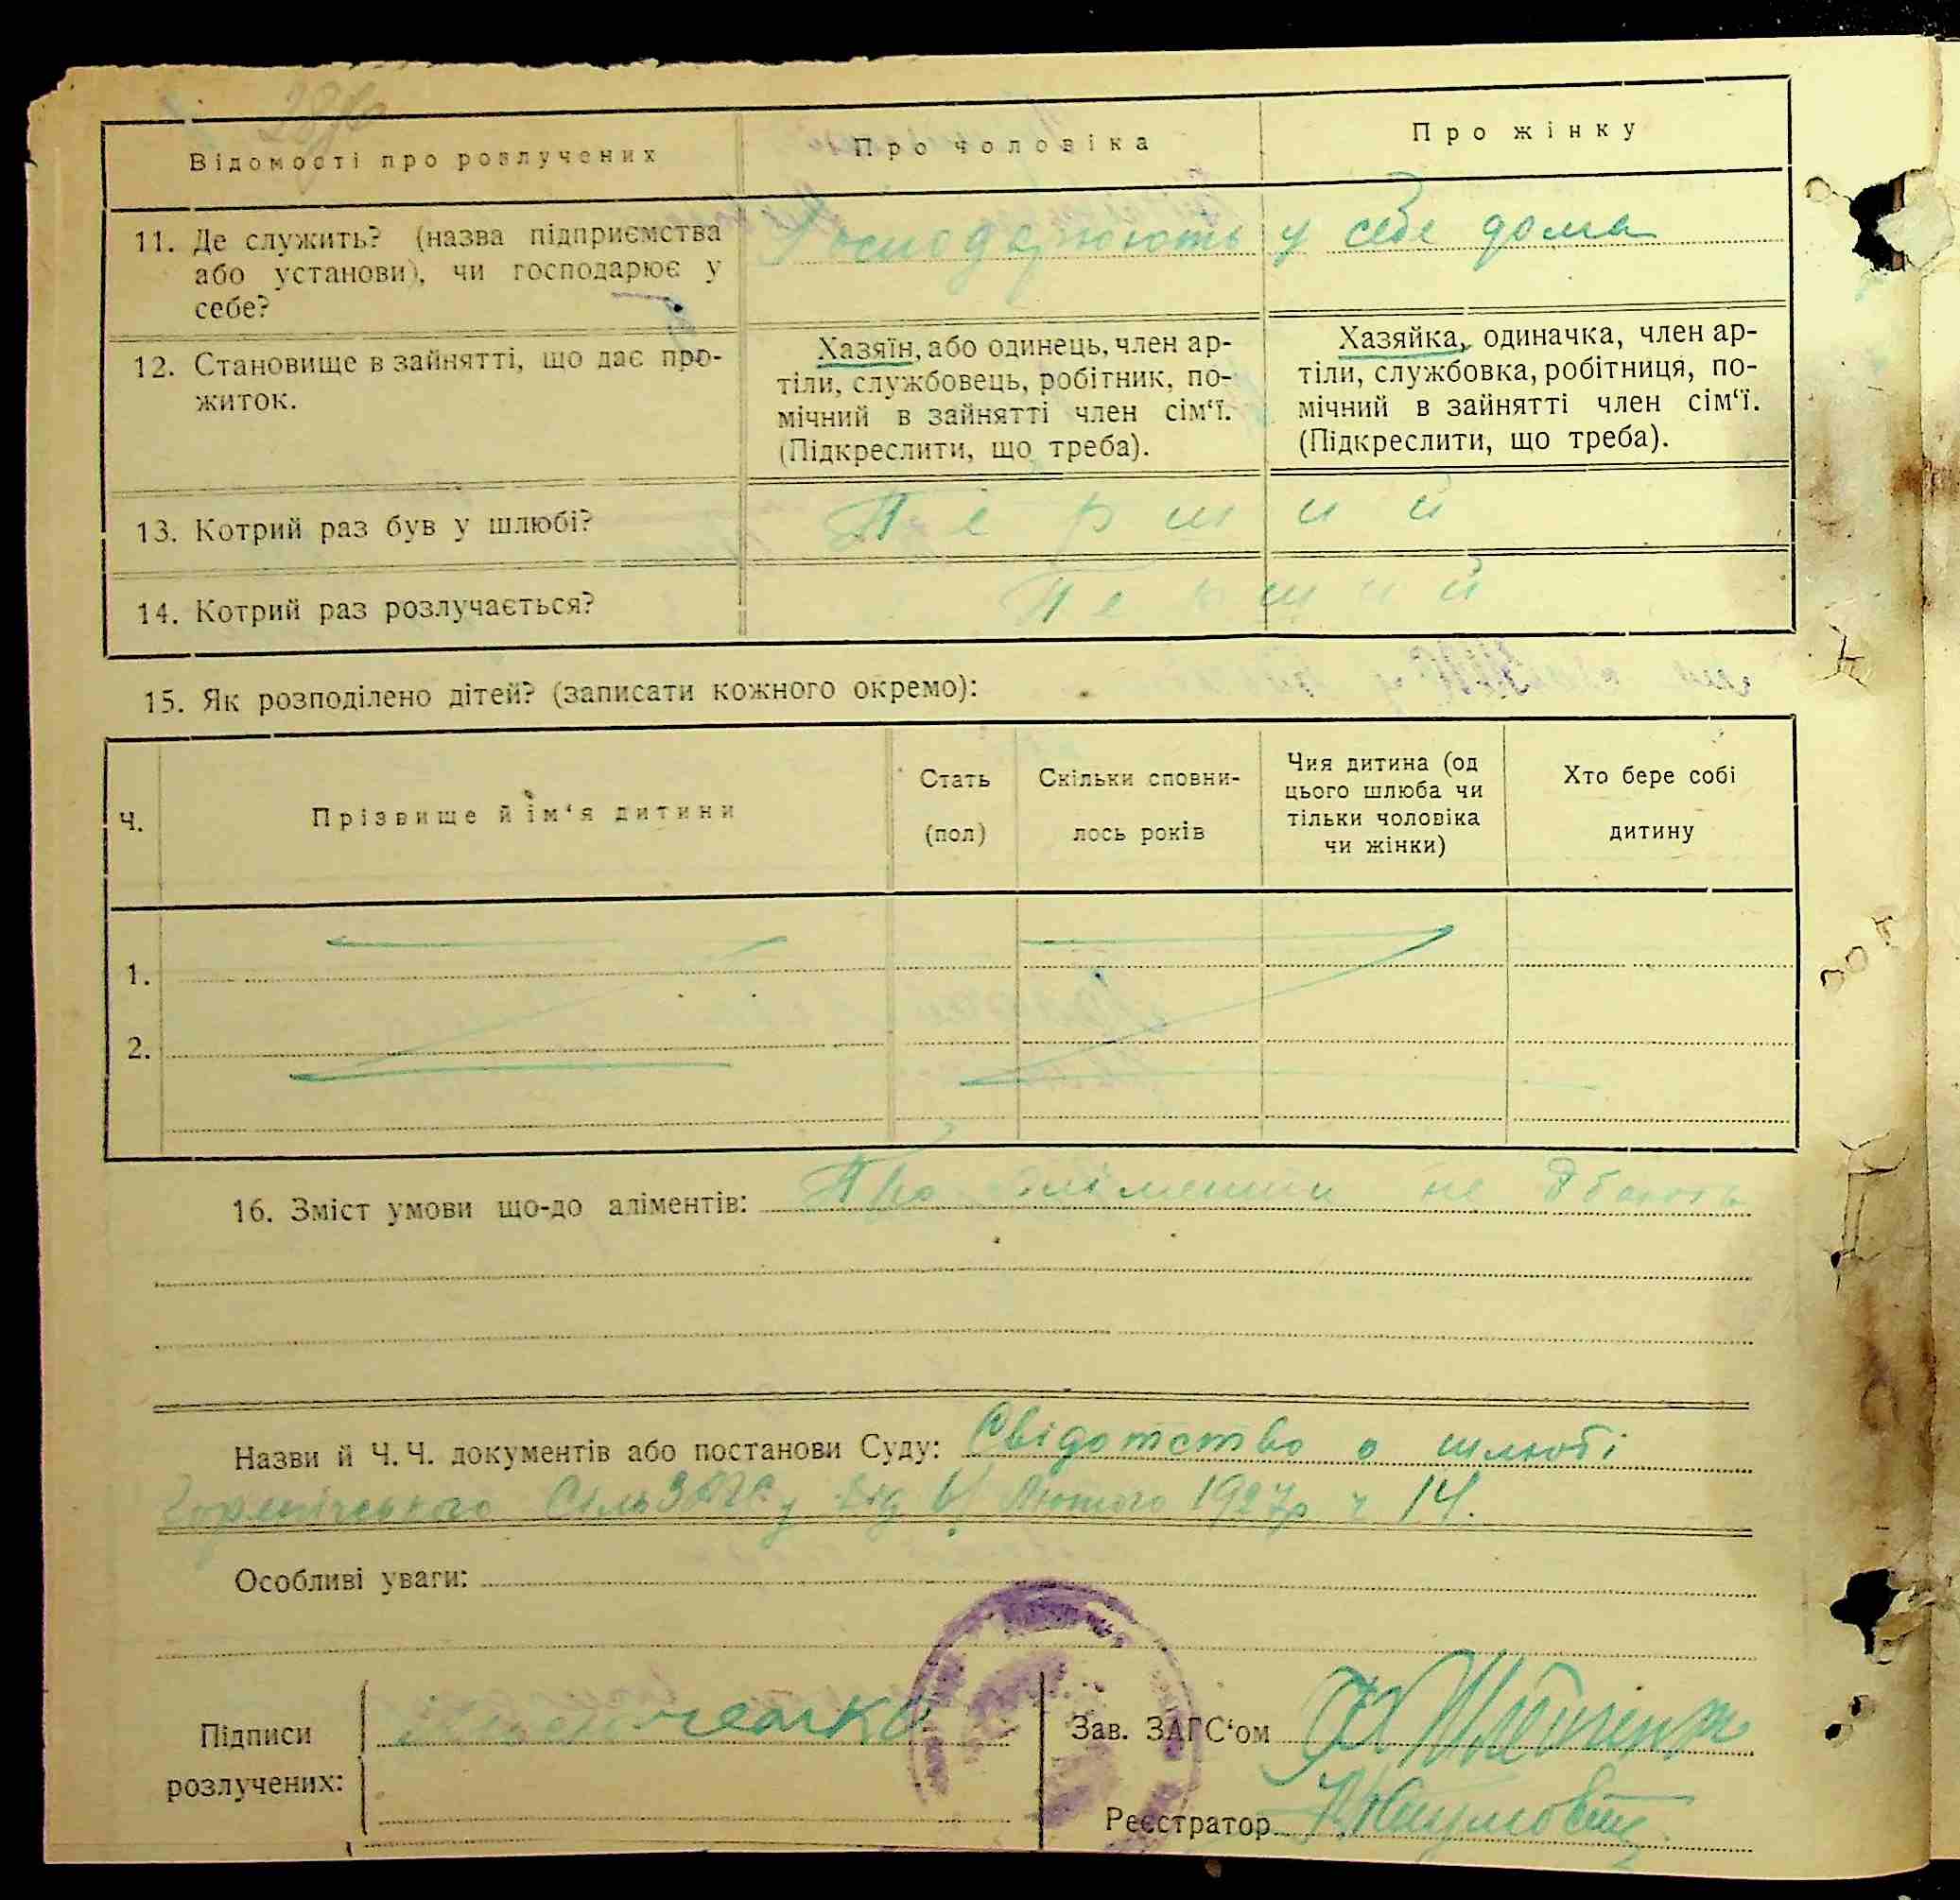 28зв
Відомості про розлучених
Про чоловіка
Про жінку
11. Де служить? (назва підприємства
або установи), чи господарює у
себе?
Господарюють у себе дома
12. Становище в зайнятті, що дає про-
житок.
Хазяїн, або одинець, член ар-
тіли, службовець, робітник, по-
мічний в зайнятті член сім‘ї.
(Підкреслити, що треба).
Хазяйка, одиначка, член ар-
тіли, службовка, робітниця, по-
мічний в зайнятті член сім‘ї.
(Підкреслити, що треба).
13. Котрий раз був у шлюбі?
Перший
14. Котрий раз розлучається?
Перший
15. Як розподілено дітей? (записати кожного окремо):
Ч.
Прізвище й ім‘я дитини
Стать
(пол)
Скільки сповни-
лось років
Чия дитина (од
цього шлюба чи
тільки чоловіка
чи жінки)
Хто бере собі
дитину
1.
2.
16. Зміст умови що-до аліментів: Про аліменти не дбають
Назви й Ч. Ч. документів або постанови Суду: Свідотство о шлюбі
СільЗАГСу від Лютого 1927р ч 14.
Особливі уваги:
Підписи
розлучених:
Зав. ЗАГС‘ом
Реєстратор Наумовиц